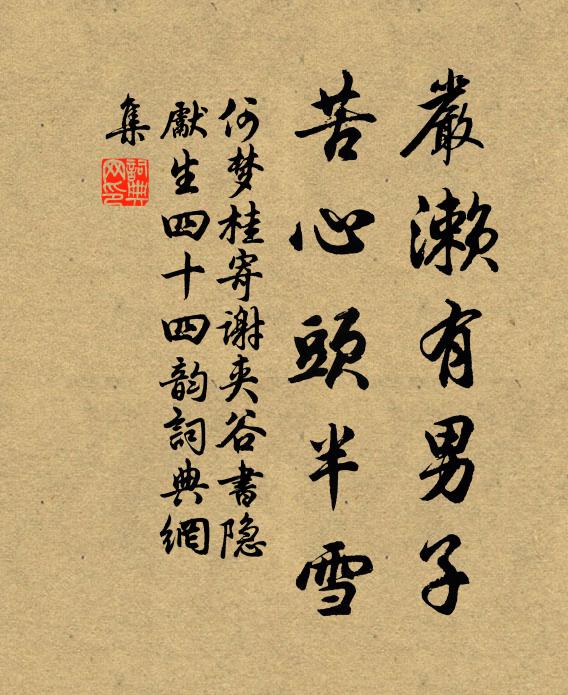 嚴濑有男子
苦心頭半雪
何梦桂寄谢夹谷書隐
獻生四十四韵詞典網
集
詞典
网印